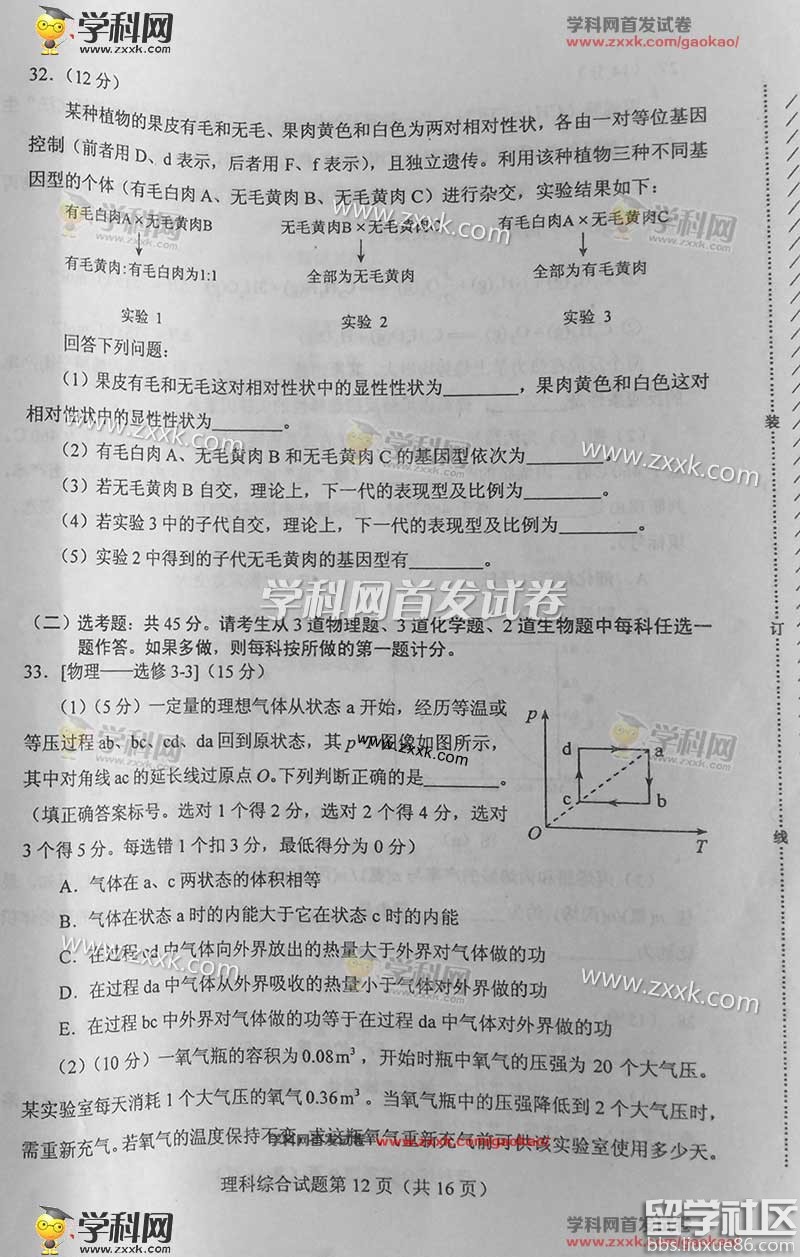 学科网
www.zxxk.com
学科网首发试卷
www.zxxk.com/gaokao/
32．（12 分）
某种植物的果皮有毛和无毛、果肉黄色和白色为两对相对性状，各由一对等位基因
控制（前者用 D、d 表示，后者用 F、f 表示），且独立遗传。利用该种植物三种不同基
因型的个体（有毛白肉 A、无毛黄肉 B、无毛黄肉 C）进行杂交，实验结果如下：
有毛白肉A×无毛黄肉B 无毛黄肉B×无毛黄肉C 有毛白肉A×无毛黄肉C
有毛黄肉:有毛白肉为1:1 全部为无毛黄肉 全部为有毛黄肉
实验 1 实验 2 实验 3
回答下列问题：
（1）果皮有毛和无毛这对相对性状中的显性性状为________，果肉黄色和白色这对
相对性状中的显性性状为________。
（2）有毛白肉 A、无毛黄肉 B 和无毛黄肉 C 的基因型依次为________。
（3）若无毛黄肉 B 自交，理论上，下一代的表现型及比例为________。
（4）若实验 3 中的子代自交，理论上，下一代的表现型及比例为________。
（5）实验 2 中得到的子代无毛黄肉的基因型有________。
学科网首发试卷
（二）选考题：共 45 分。请考生从 3 道物理题、3 道化学题、2 道生物题中每科任选一
题作答。如果多做，则每科按所做的第一题计分。
33．[物理——选修 3-3]（15 分）
（1）（5 分）一定量的理想气体从状态 a 开始，经历等温或
等压过程 ab、bc、cd、da 回到原状态，其 p-T 图像如图所示，
其中对角线 ac 的延长线过原点 O。下列判断正确的是________。
（填正确答案标号。选对 1 个得 2 分，选对 2 个得 4 分，选对
3 个得 5 分。每选错 1 个扣 3 分，最低得分为 0 分）
p
d a
c b
O T
A．气体在 a、c 两状态的体积相等
B．气体在状态 a 时的内能大于它在状态 c 时的内能
C．在过程 cd 中气体向外界放出的热量大于外界对气体做的功
D．在过程 da 中气体从外界吸收的热量小于气体对外界做的功
E．在过程 bc 中外界对气体做的功等于在过程 da 中气体对外界做的功
（2）（10 分）一氧气瓶的容积为 0.08 m³，开始时瓶中氧气的压强为 20 个大气压。
某实验室每天消耗 1 个大气压的氧气 0.36 m³。当氧气瓶中的压强降低到 2 个大气压时，
需重新充气。若氧气的温度保持不变，求这瓶氧气重新充气前可供该实验室使用多少天。
学科网首发试卷 www.zxxk.com/gaokao/
理科综合试题第 12 页（共 16 页）
装
订
线
学科网
www.zxxk.com
学科网首发试卷
www.zxxk.com/gaokao/
留学社区
bbs.liuxue86.com